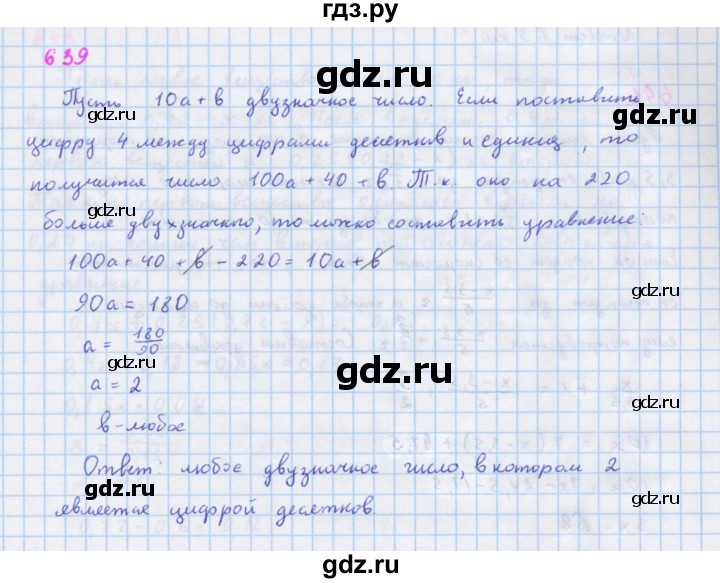 гдз.ру
639
Пусть 10а+в двузначное число. Если поставить
цифру 4 между цифрами десятков и единиц, то
получится число 100а+40+в. Т.к. оно на 220
gdz.ru
больше двухзначного, то можно составить уравнение:
100а+40+в-220=10а+в
gdz.ru
90а=180
а=180/90
gdz.ru
gdz.ru
а=2
в-любое
gdz.ru
Ответ: любое двузначное число, в котором 2
gdz.ru
является цифрой десятков
gdz.ru